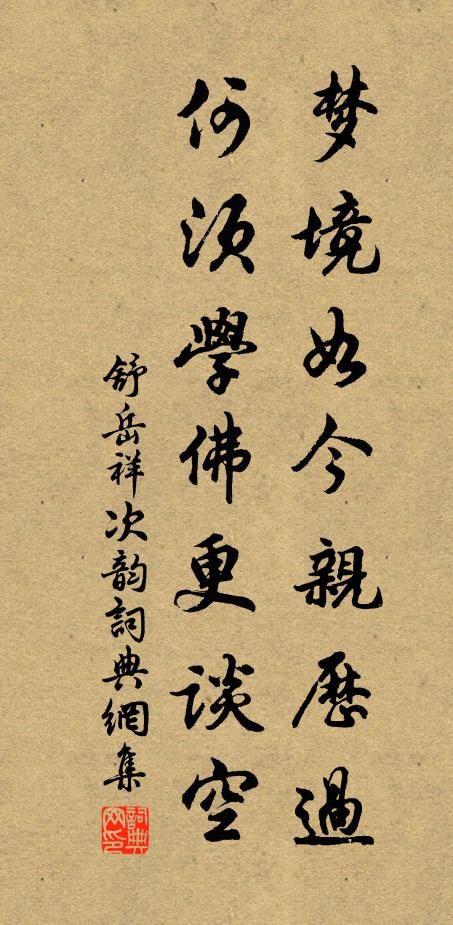 梦境如今親歷過
何須學佛更談空
舒岳祥次韵詞典網集
詞典网印